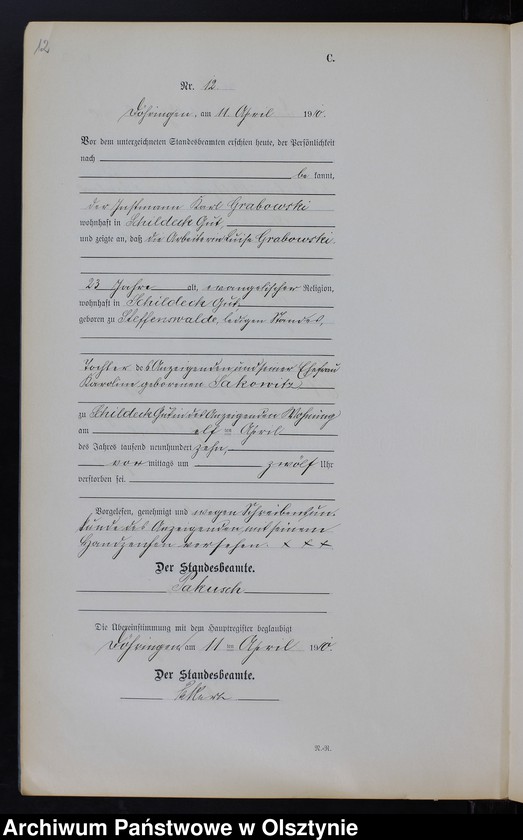 12
C.
Nr. 12
Döhringen, am 11 April 1910.
Vor dem unterzeichneten Standesbeamten erschien heute, der Persönlichkeit
nach
be kannt,
der Instmann Karl Grabowski
wohnhaft in Schildeck Gut,
und zeigte an, daß die Arbeiterin Luise Grabowski
23 Jahre alt, evangelischer Religion,
wohnhaft in Schildeck Gut
geboren zu Steffenswalde, ledigen Standes,
Tochter des Anzeigenden und seiner Ehefrau
Karoline geborenen Sakowitz
zu Schildeck Gut in des Anzeigenden Wohnung
am elf ten April
des Jahres tausend neunhundert zehn,
vor mittags um zwölf Uhr
verstorben sei.
Vorgelesen, genehmigt und wegen Schreibensun-
kunde des Anzeigenden mit seinem
Handzeichen versehen. × × ×
Der Standesbeamte.
Die Übereinstimmung mit dem Hauptregister beglaubigt
Döhringen am 11 ten April 1910
Der Standesbeamte.
N.-R.
Archiwum Państwowe w Olsztynie